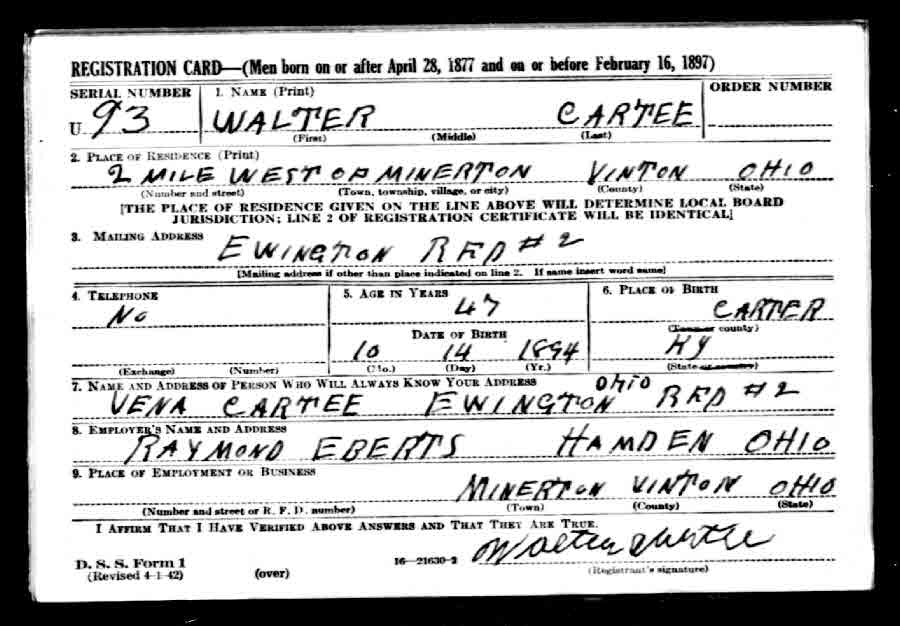 REGISTRATION CARD—(Men born on or after April 28, 1877 and on or before February 16, 1897)
SERIAL NUMBER 1. NAME (Print) ORDER NUMBER
U 93 WALTER CARTEE
(First) (Middle) (Last)
2. PLACE OF RESIDENCE (Print)
2 MILE WEST OF MINERTON VINTON OHIO
(Number and street) (Town, township, village, or city) (County) (State)
[THE PLACE OF RESIDENCE GIVEN ON THE LINE ABOVE WILL DETERMINE LOCAL BOARD
JURISDICTION; LINE 2 OF REGISTRATION CERTIFICATE WILL BE IDENTICAL]
3. MAILING ADDRESS
EWINGTON RFD #2
[Mailing address if other than place indicated on line 2. If same insert word same]
4. TELEPHONE 5. AGE IN YEARS 6. PLACE OF BIRTH
No 47 CARTER
DATE OF BIRTH (Town or county)
10 14 1894 KY
(Exchange) (Number) (Mo.) (Day) (Yr.) (State or country)
7. NAME AND ADDRESS OF PERSON WHO WILL ALWAYS KNOW YOUR ADDRESS
VENA CARTEE EWINGTON OHIO RFD #2
8. EMPLOYER'S NAME AND ADDRESS
RAYMOND EBERTS HAMDEN OHIO
9. PLACE OF EMPLOYMENT OR BUSINESS
MINERTON VINTON OHIO
(Number and street or R. F. D. number) (Town) (County) (State)
I AFFIRM THAT I HAVE VERIFIED ABOVE ANSWERS AND THAT THEY ARE TRUE.
D. S. S. Form 1
(Revised 4-1-42) (over) 16—21630-2 Walter Cartee
(Registrant's signature)